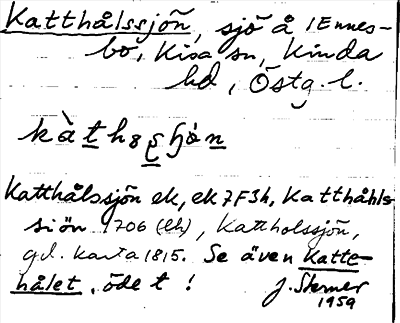 Katthålssjön, sjö å Ennes-
bo, Kisa sn, Kinda
hd, Östg. l.
Katthålssjön ek, ek 7F3h, Katthåhls
siön 1706 (eh), Kattholssjön,
gd. karta 1815. Se även Katte-
hålet, öde t!
J. Sterner
1959